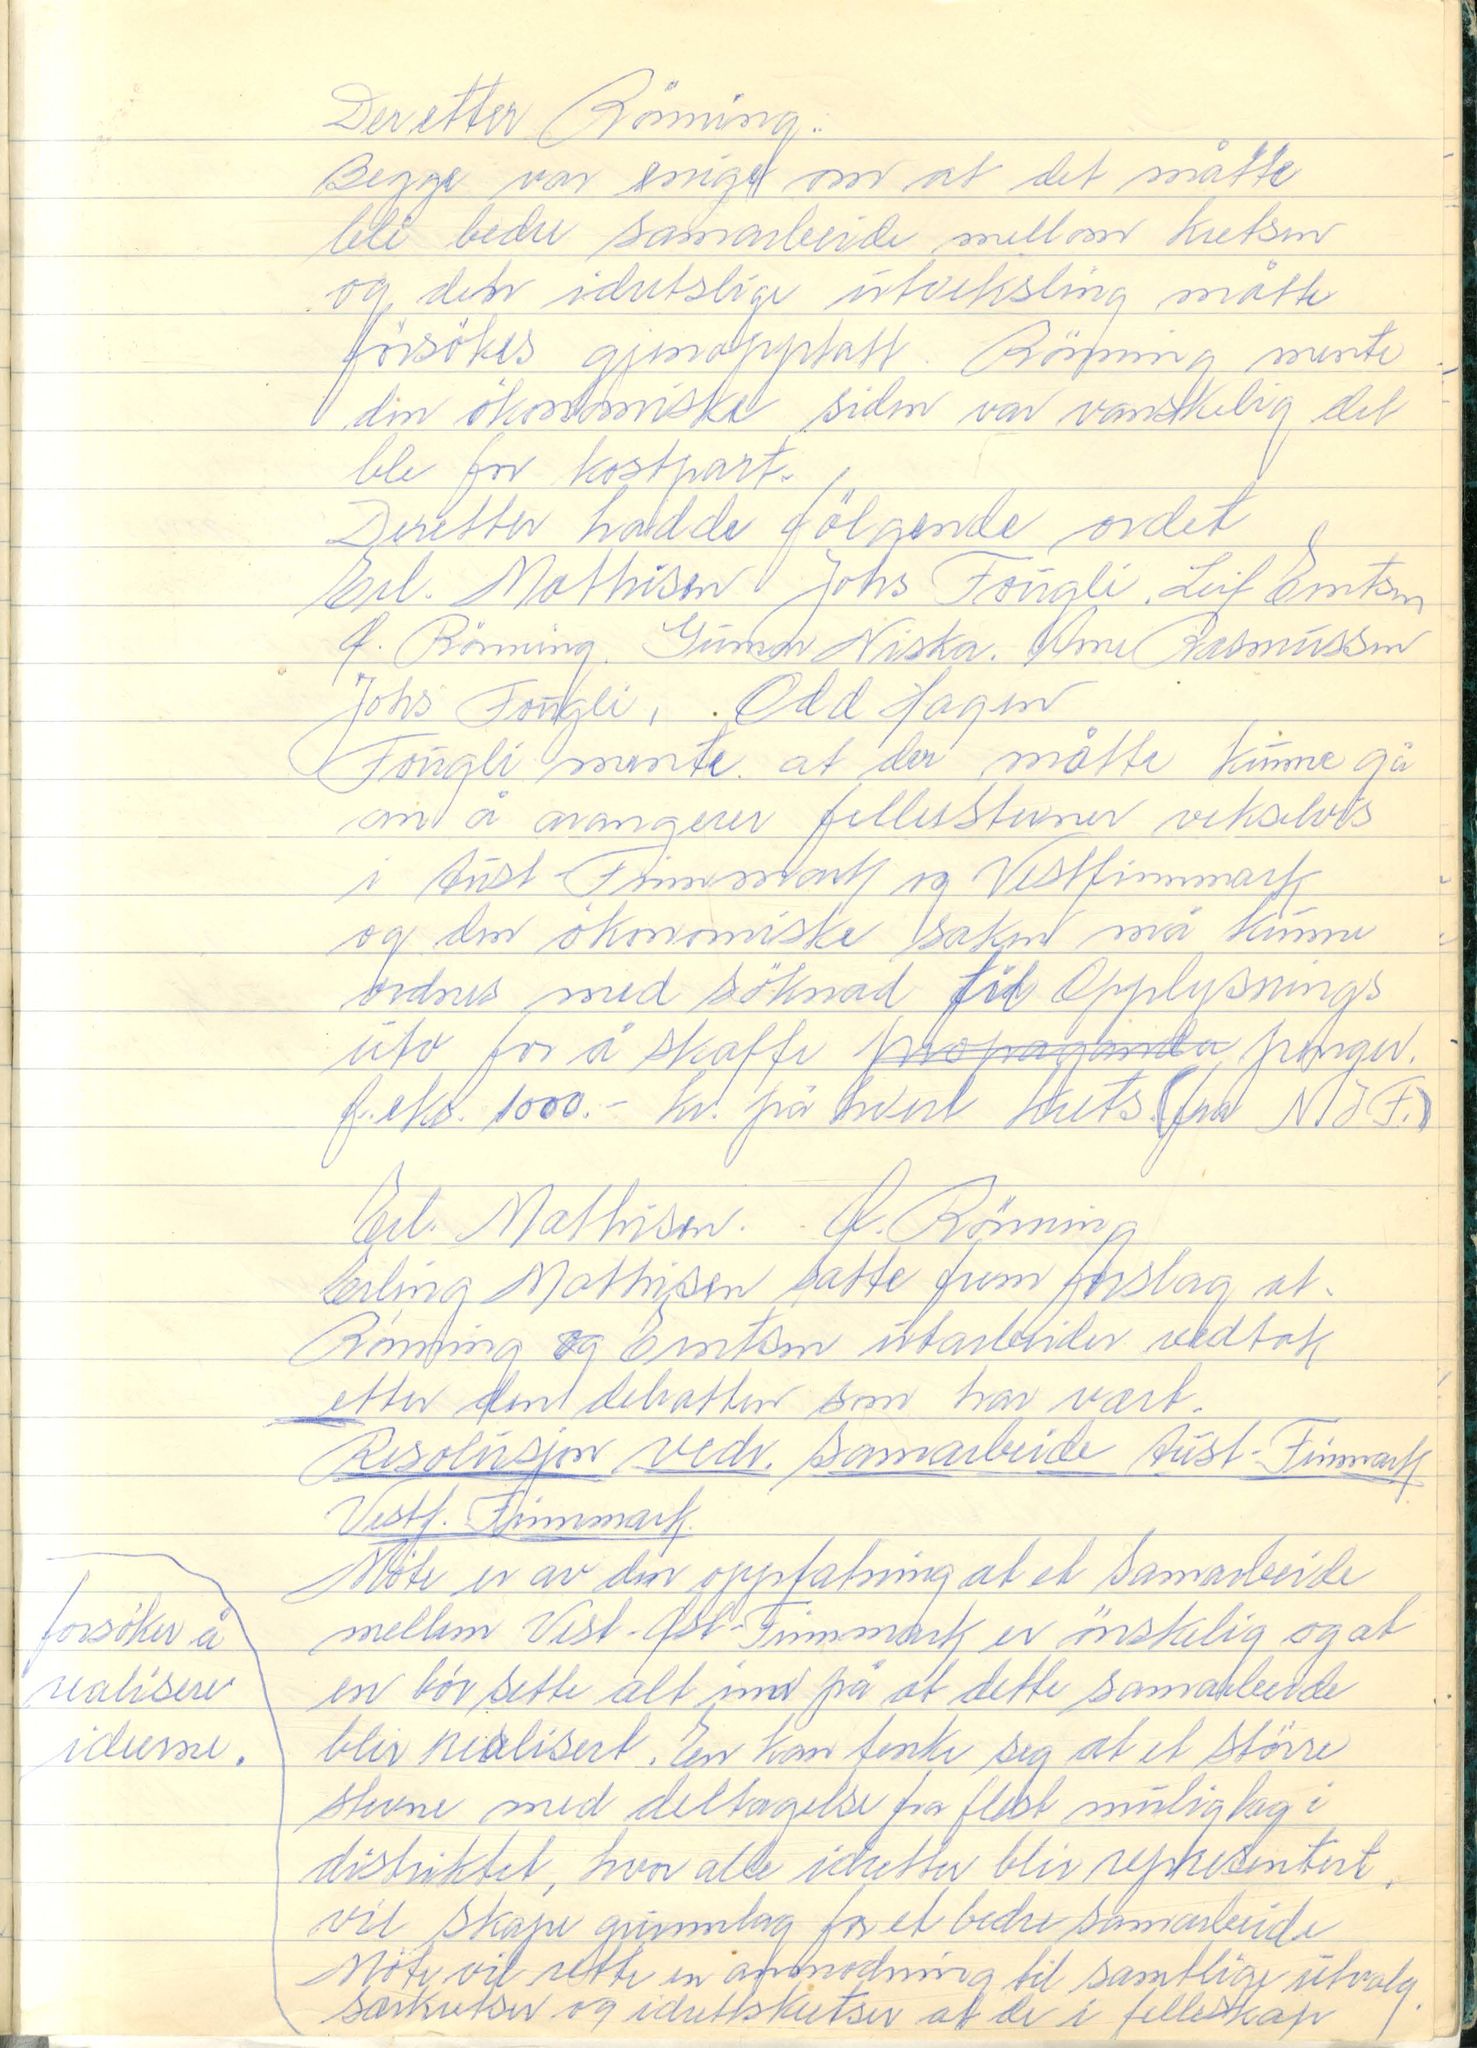 Deretter Rönning.
Begge var enige om at det måtte
bli bedre samarbeide mellom kretsen
og den idretslige utveksling måtte
försökes gjenopptatt. Rönning mente
den ökonomiske siden var vanskelig det
ble for kostpart.
Deretter hadde fölgende ordet
Erl. Mathisen Johs Fougli, Leif Emtsen
Rönning. Gunnar Niska. Arne Rasmussen
Johs Fougli, Odd Hagen
Fougli mente at der måtte kunne gå
an å arangerer fellesstevner vekselvis
i Aust-Finnmark og Vestfinnmark
og den ökonomiske saken må kunne
ordnes med söknad til Opplysnings
utv for å skaffe propaganda penger.
f.eks. 1000.- kr. på hver krets (fra N I F.)
Erl. Mathisen. Rönning
Erling Mathisen satte frem forslag at.
Rönning og Emtsen utarbeider vedtak
etter den debatten som har vært.
Resolusjon vedr. samarbeide Aust-Finnmark
Vestf. Finnmark.
Möte er av den oppfatning at et samarbeide
mellem Vest-Öst-Finnmark er önskelig og at
en bör sette alt inn på at dette samarbeide
blir realisert. En kan tenke seg at et större
stevne med deltagelse fra flest mulig lag i
distriktet, hvor alle idretter blir representert,
vil skape grunnlag for et bedre samarbeide
Möte vil rette en anmodning til samtlige utvalg.
særkretser og idrettskretser at de i felleskap
forsöker å
realisere
ideerne.